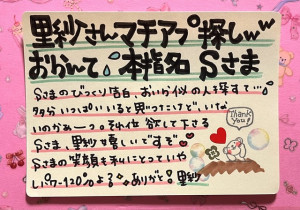 里紗さんマチアプ探しww
おらんて 本指名 Sさま
Sさまのびっくり告白、おいが似の人探すて…
多分いっぱいいると思ったけど、いな
いのがあーっ。それ位欲して下さる
Sさま、里紗も嬉しいですぞ
Sさまの笑顔も私にとっていや
しパワー120%よる ありがと! 里紗
Thank You!